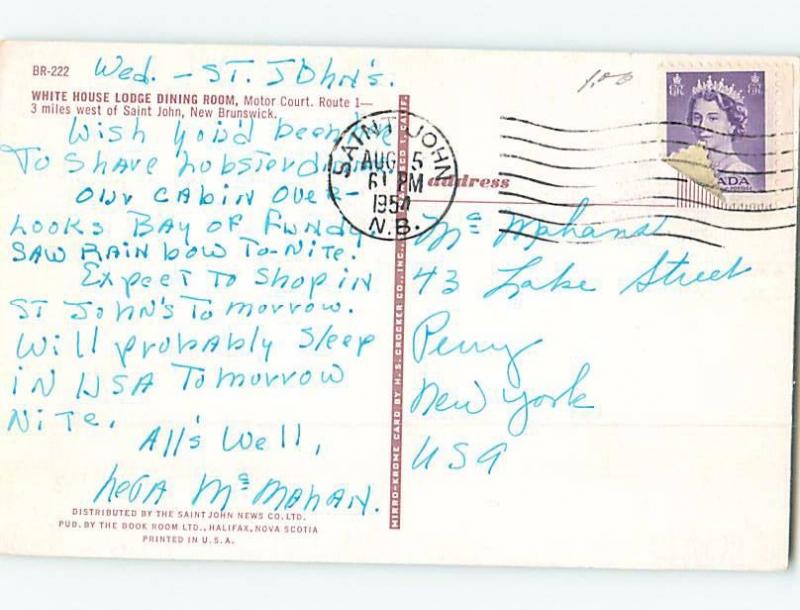 BR-222
Wed. - ST. JOhn's.
WHITE HOUSE LODGE DINING ROOM, Motor Court. Route 1—
3 miles west of Saint John, New Brunswick.
Wish you'd been
To Share Lobster
our cabin over-
Looks Bay of Fundy
SAW RAINbow To-Nite.
Expect To Shop in
ST John's Tomorrow.
Will probably Sleep
IN USA Tomorrow
Nite.
All's Well,
McMAHAN.
DISTRIBUTED BY THE SAINT JOHN NEWS CO. LTD.
PUB. BY THE BOOK ROOM LTD., HALIFAX, NOVA SCOTIA
PRINTED IN U.S.A.
MIRRO-KROME CARD BY H. S. CROCKER CO., INC.,
CALIF.
SAINT JOHN
AUG 5
61 PM
1954
N.B.
address
1.00
ADA
43 Lake Street
Perry
New York
USA